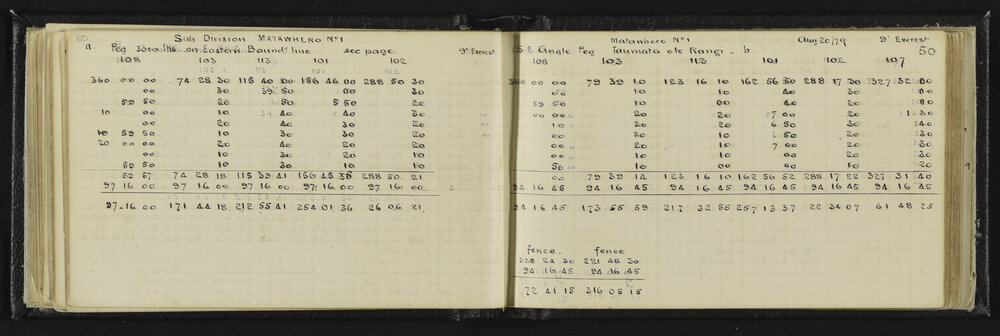 50
Sub Division MATAWHERO No1
Peg 3000 lks on Eastern Boundy line see page. 9" Everest
108 103 113 101 102
360 00 00 74 28 30 115 40 00 156 46 00 288 50 30
00 30 39 50 00 30
59 50 20 50 5 50 20
10 00 10 40 40 20
00 20 40 30 20
10 59 50 10 30 30 20
20 00 00 20 40 20 20
00 10 30 20 10
59 50 10 30 10 20
59 57 74 28 18 115 39 41 156 45 36 288 50 21
97 16 00 97 16 00 97 16 00 97 16 00 97 16 00
97-16 00 171 44 18 212 55 41 254 01 36 26 06 21
Matawhero No1 Aug 20/79 9" Everest
S.E Angle Peg Taumata ote Rangi - b 50
108 103 113 101 102 107
360 00 00 79 39 10 123 16 10 162 56 50 288 17 30 327 32 00
00 10 10 40 30
59 50 10 00 40 20
00 00 20 20 57 00 20
10 20 20 6 50 30
00 10 20 50 20
00 20 10 7 00 20
00 10 10 00 20
50 10 10 00 20
00 79 39 14 123 16 10 162 56 52 288 17 22 327 31 40
94 16 45 94 16 45 94 16 45 94 16 45 94 16 45 94 16 45
94 16 45 173 55 59 217 32 55 257 13 37 22 34 07 61 48 25
fence. fence
338 24 30 221 48 30
94 16 45 94 16 45
72 41 15 316 05 15